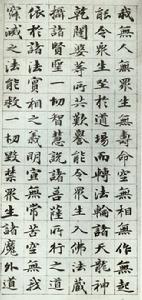 我無人無眾生無壽命空無相無作無起
能令眾生坐於道場而轉法輪諸天龍神
乾闥婆等所共歎譽能令眾生入佛法藏
攝諸賢聖一切智慧說諸菩薩所行之道
依於諸法實相之義明宣無常苦空無我
寂滅之法能救一切毀禁眾生諸魔外道